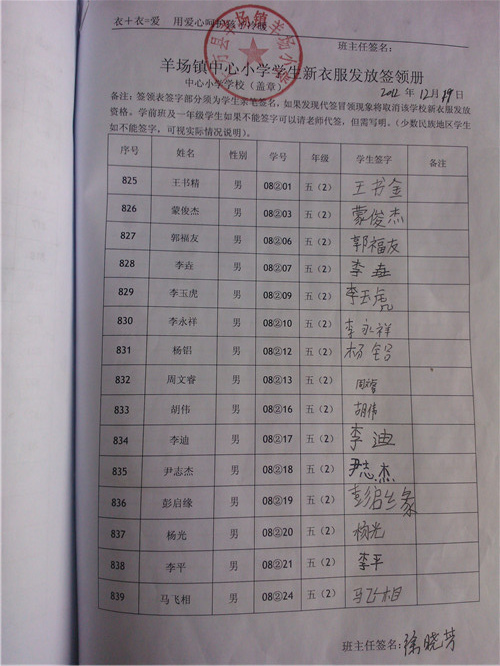 衣+衣=爱 用爱心呵护
班主任签名:
羊场镇中心小学学生新衣服发放签领册
中心小学学校(盖章) 2012年12月19日
备注:签领表签字部分须为学生亲笔签名,如果发现代签冒领现象将取消该学校新衣服发放
资格。学前班及一年级学生如果不能签字可以请老师代签,但需写明。(少数民族地区学生
如不能签字,可视实际情况说明)。
序号 姓名 性别 学号 年级 学生签字 备注
825 王书精 男 08②01 五(2) 王书金
826 蒙俊杰 男 08②03 五(2) 蒙俊杰
827 郭福友 男 08②06 五(2) 郭福友
828 李垚 男 08②07 五(2) 李垚
829 李玉虎 男 08②09 五(2) 李玉虎
830 李永祥 男 08②10 五(2) 李永祥
831 杨铝 男 08②12 五(2) 杨铝
832 周文睿 男 08②13 五(2)
833 胡伟 男 08②16 五(2) 胡伟
834 李迪 男 08②17 五(2) 李迪
835 尹志杰 男 08②18 五(2) 尹志杰
836 彭启缘 男 08②19 五(2) 彭启缘
837 杨光 男 08②20 五(2) 杨光
838 李平 男 08②21 五(2) 李平
839 马飞相 男 08②24 五(2) 马飞相
班主任签名:徐晓芳